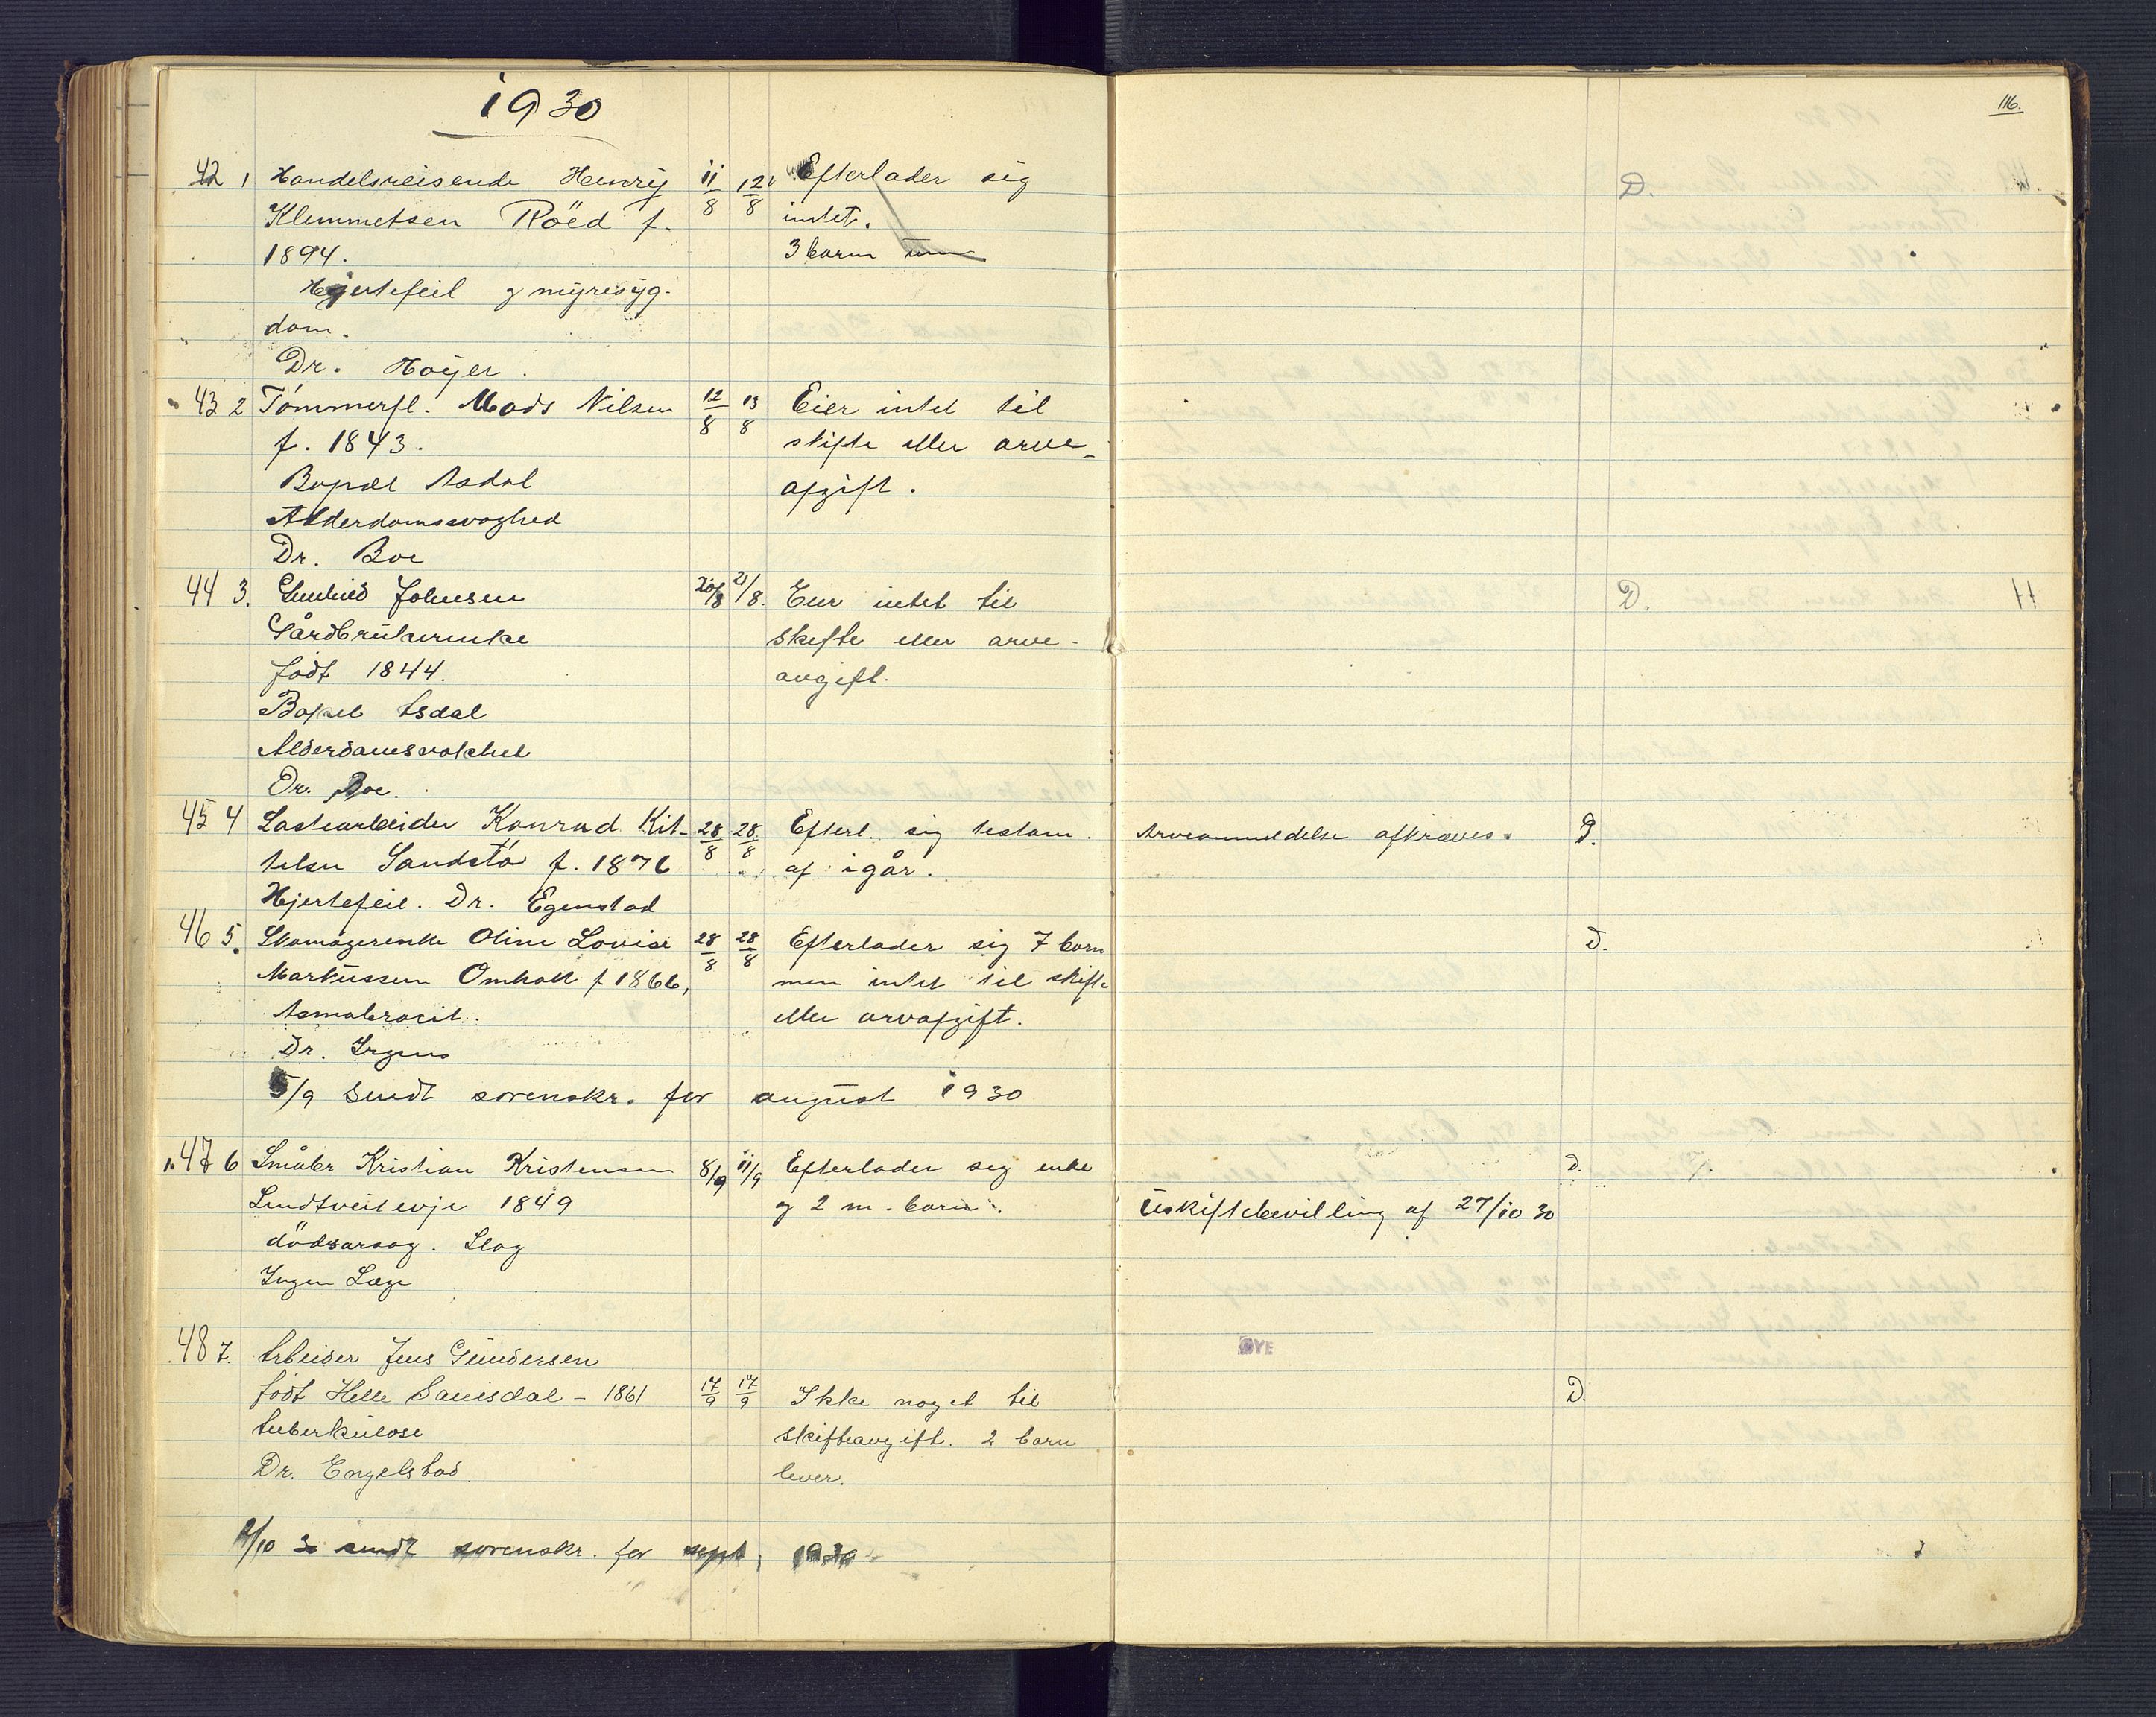 1930
116.
42 1 Handelsreisende Henry 11/8 12/8 Efterlader sig D.
Klemmetsen Röed f. intet.
1894. 3 barn
Hjertefeil og nyresyg-
dom.
Dr. Høyer.
43 2 Tømmerfl. Mads Nilsen 12/8 13/8 Eier intet til
f. 1843. skifte eller arve-
Bopæl Asdal afgift.
Alderdomssvaghed
Dr. Boe
44 3. Gunhild Johnsen 20/8 21/8. Eier intet til D.
Gårdbrukerenke skifte eller arve-
født 1844. avgift.
Bopæl Asdal
Alderdomssvakhet
Dr. Boe.
45 4 Lastearbeider Konrad Kit- 28/8 28/8 Efterl. sig testam. Arveanmeldelse afkræves. D.
telsen Sandstø f. 1876 af igår.
Hjertefeil. Dr. Egenstad
46 5. Skomagerenke Oline Lovise 28/8 28/8 Efterlader sig 7 barn D.
Markussen Omholt f 1866, men intet til skifte
Asmabrocit. eller arvafgift.
Dr. Irgens
5/9 Sendt sorenskr. for august 1930
47 6 Småbr Kristian Kristensen 8/9 11/9 Efterlader seg enke D.
Lindtveitevje 1849 og 2 m. barn. Uskiftebevilling af 27/10 30
dödsarsag. Slag
Ingen Læge
48 7. Arbeider Jens Gundersen
født Helle Sauisdal - 1861 17/9 17/9 Ikke noget til D.
tuberkulose skifteavgift. 2 barn
Dr. Engelstad lever.
2/10 30 sendt sorenskr. for sept, 1930